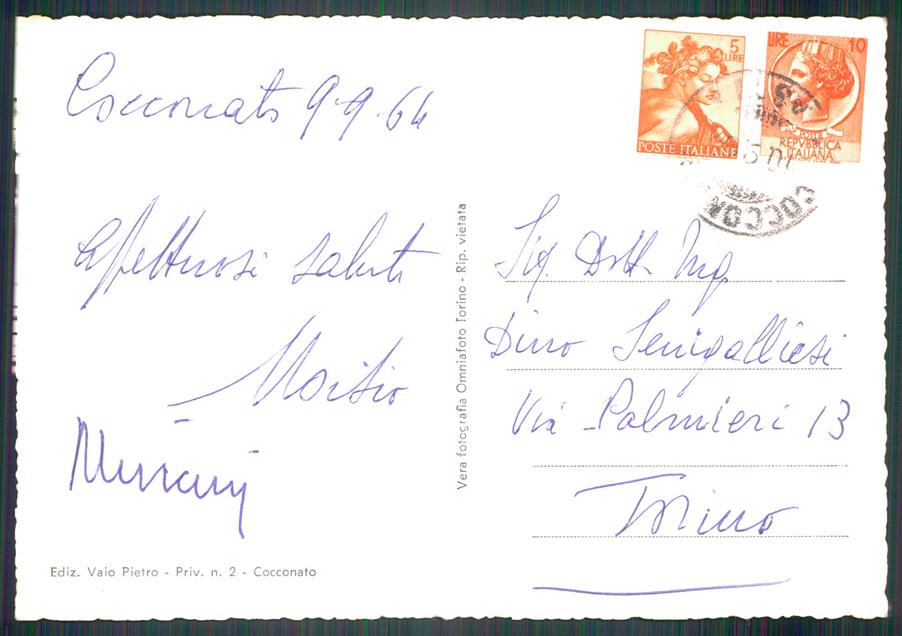 Cocconato 9-9-64
Affettuosi saluti
Ediz. Vaio Pietro - Priv. n. 2 - Cocconato
Vera fotografia Omniafoto Torino - Rip. vietata
5
LIRE
POSTE ITALIANE
LIRE 10
POSTE
REPVBBLICA
ITALIANA
COCCON
Sig. Dott. Ing.
Dino Senigalliesi
Via Palmieri 13
Torino